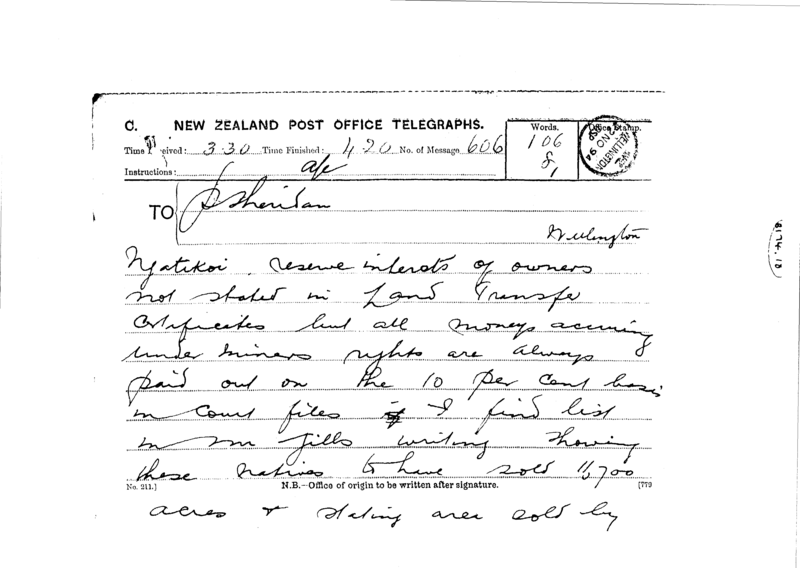 C. NEW ZEALAND POST OFFICE TELEGRAPHS.
Words. Office Stamp.
Time Received: 3.30 Time Finished: 4.20 No. of Message 606 106
Instructions:
WELLINGTON NO 94
TO P Sheridan
Wellington
Ngatikoi reserve interests of owners
not stated in Land Transfer
Certificates but all moneys accruing
under miners rights are always
paid out on the 10 per cent basis
in Court files I find list
in Mr Gills writing showing
these natives to have sold 11,700
No. 211.] N.B.—Office of origin to be written after signature. [773
acres & stating area sold by
8174.13